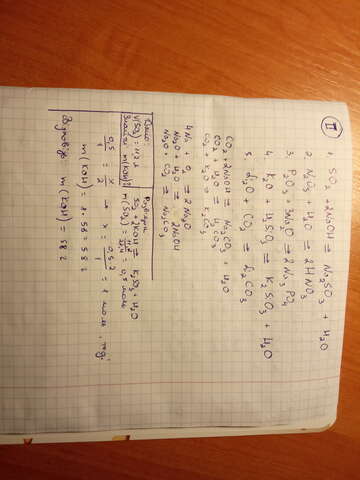 II
1. SO₂ + 2NaOH ⇌ Na₂SO₃ + H₂O
2. N₂O₅ + H₂O ⇌ 2HNO₃
3. P₂O₅ + 3Na₂O ⇌ 2Na₃PO₄
4. K₂O + H₂SO₃ ⇌ K₂SO₃ + H₂O
5. Li₂O + CO₂ ⇌ Li₂CO₃
CO₂ + 2NaOH ⇌ Na₂CO₃ + H₂O
CO₂ + H₂O ⇌ H₂CO₃
CO₂ + K₂O ⇌ K₂CO₃
4Na + O₂ = 2Na₂O
Na₂O + H₂O = 2NaOH
Na₂O + CO₂ ⇌ Na₂CO₃
Дано:
V(SO₂) = 11,2 л
Знайти m(KOH)?
SO₂ + 2KOH ⇌ K₂SO₃ + H₂O
= 0,5 моль
0,5/1 = x/2 → x = 0,5·2/1 = 1 моль
m(KOH) = 1·56 = 56 г
Відповідь: m(KOH) = 56 г